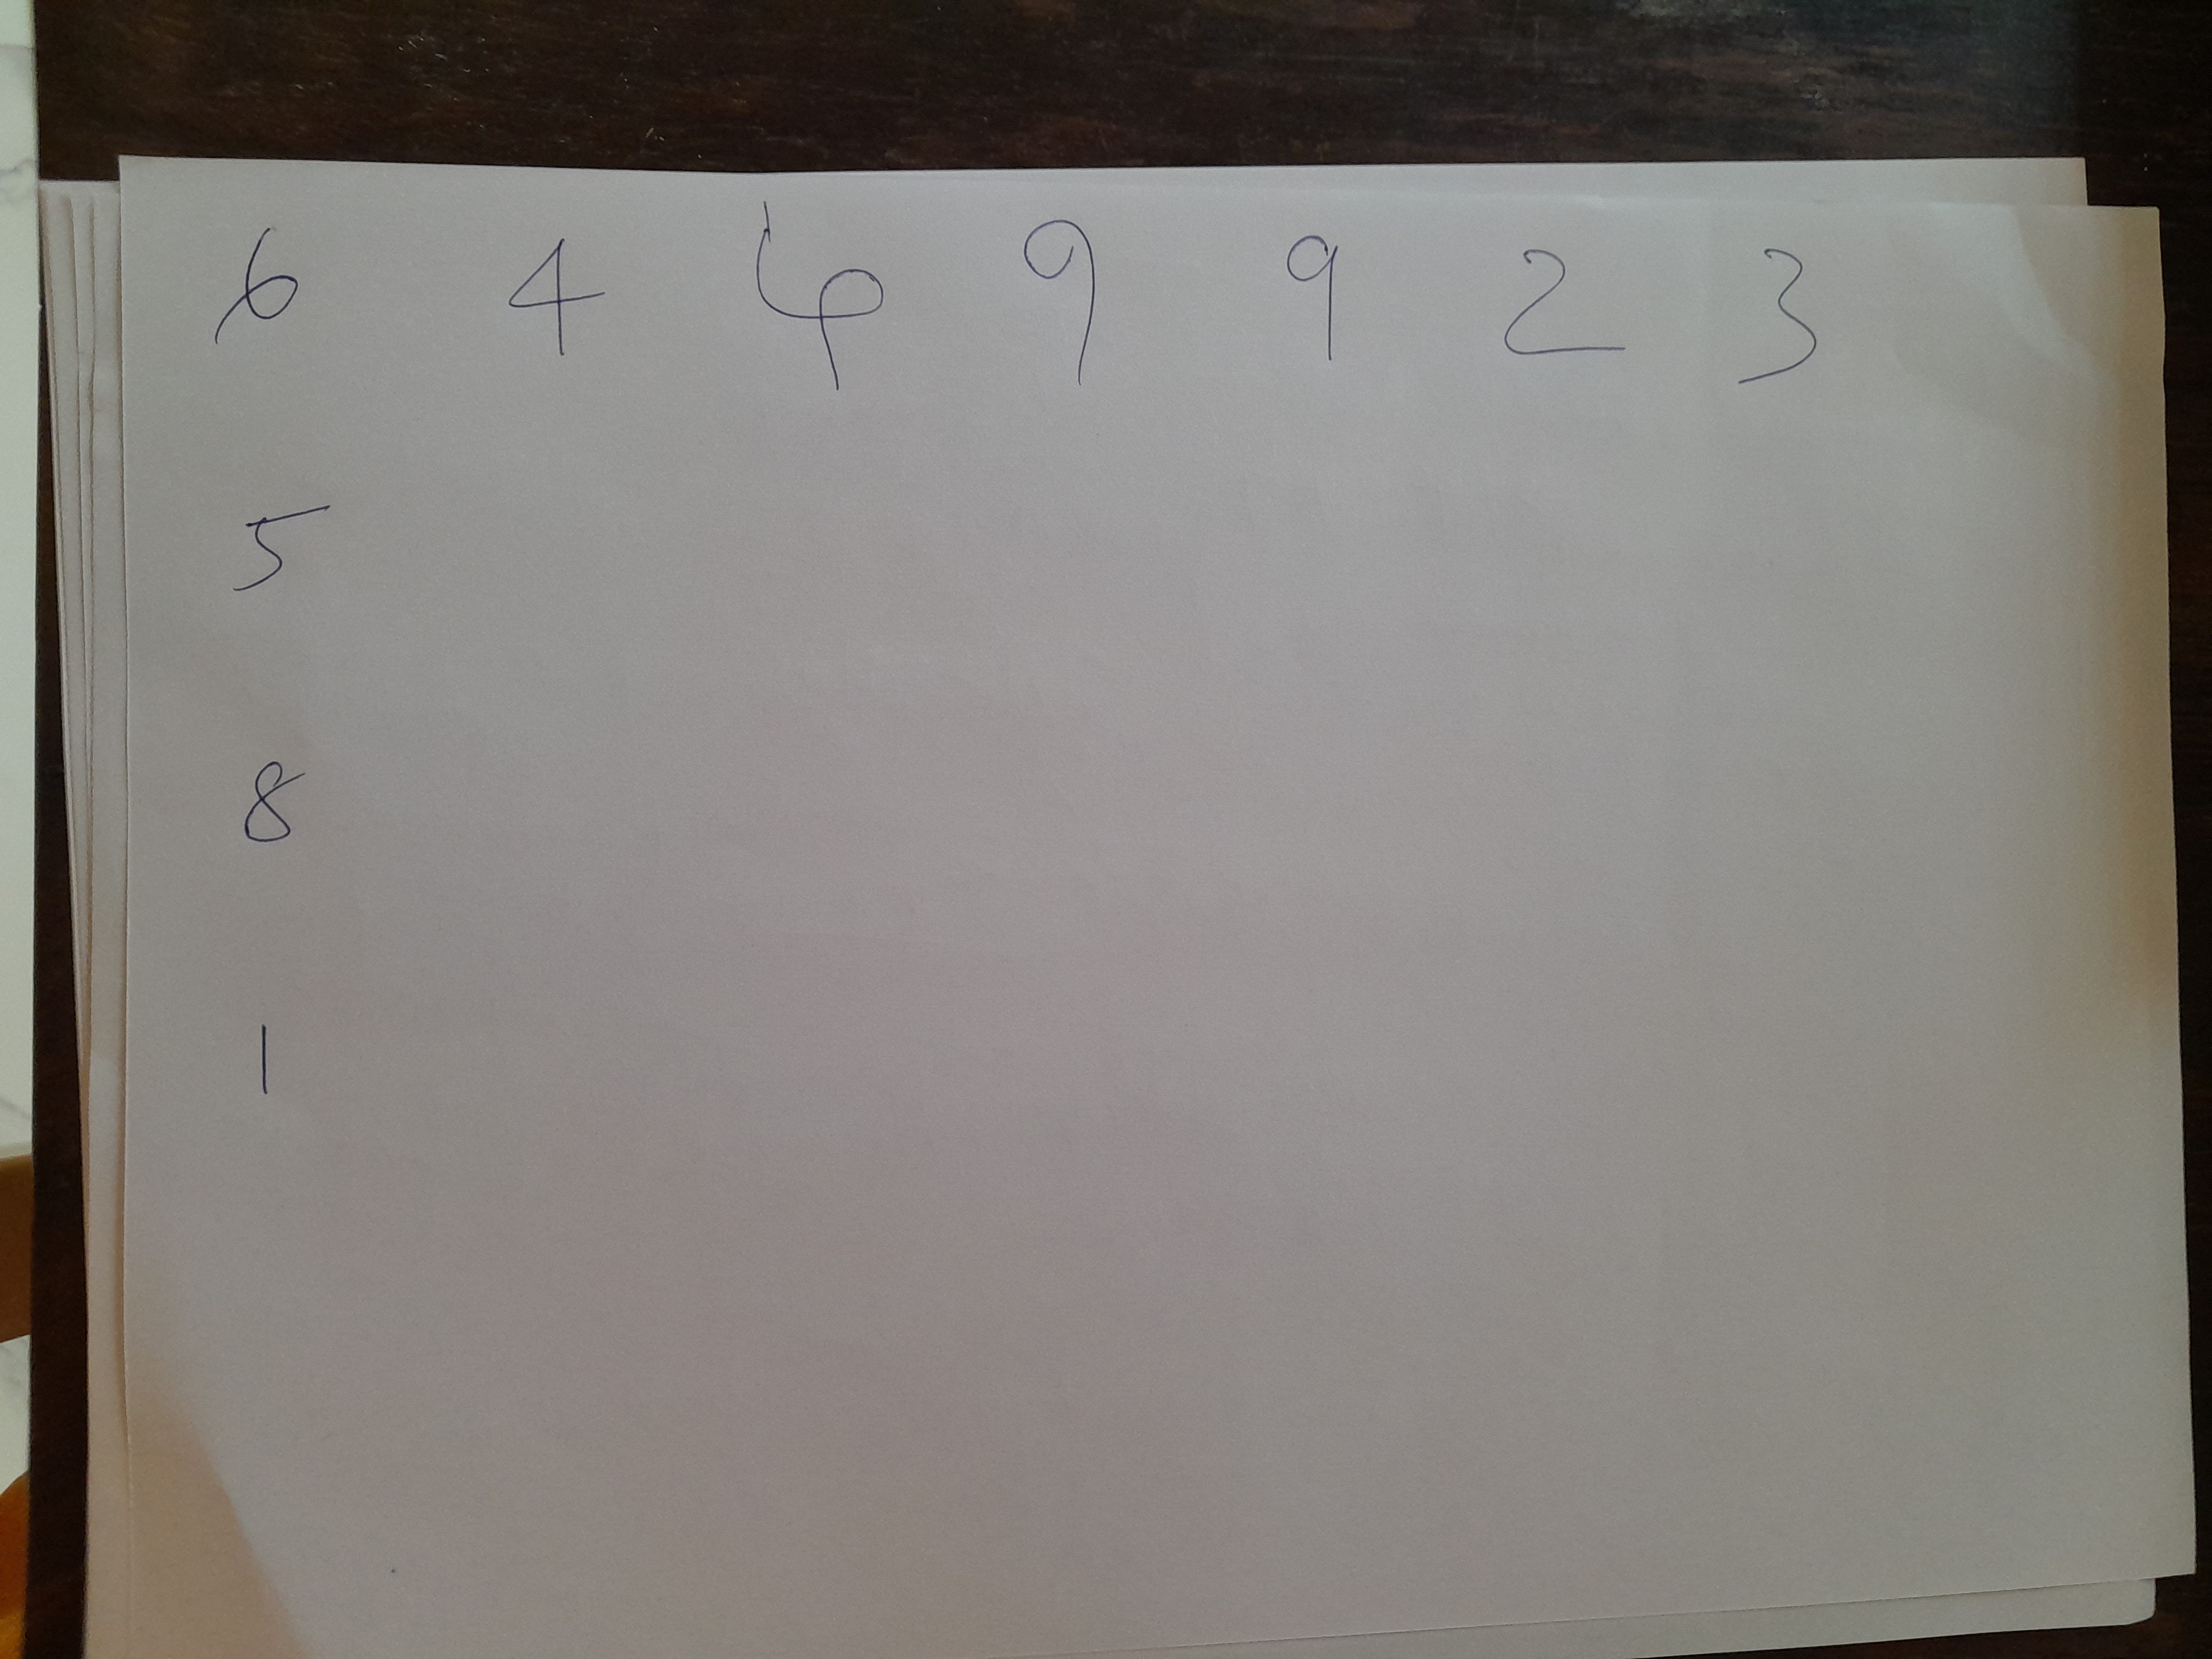 6 4 4 9 9 2 3
5
8
1